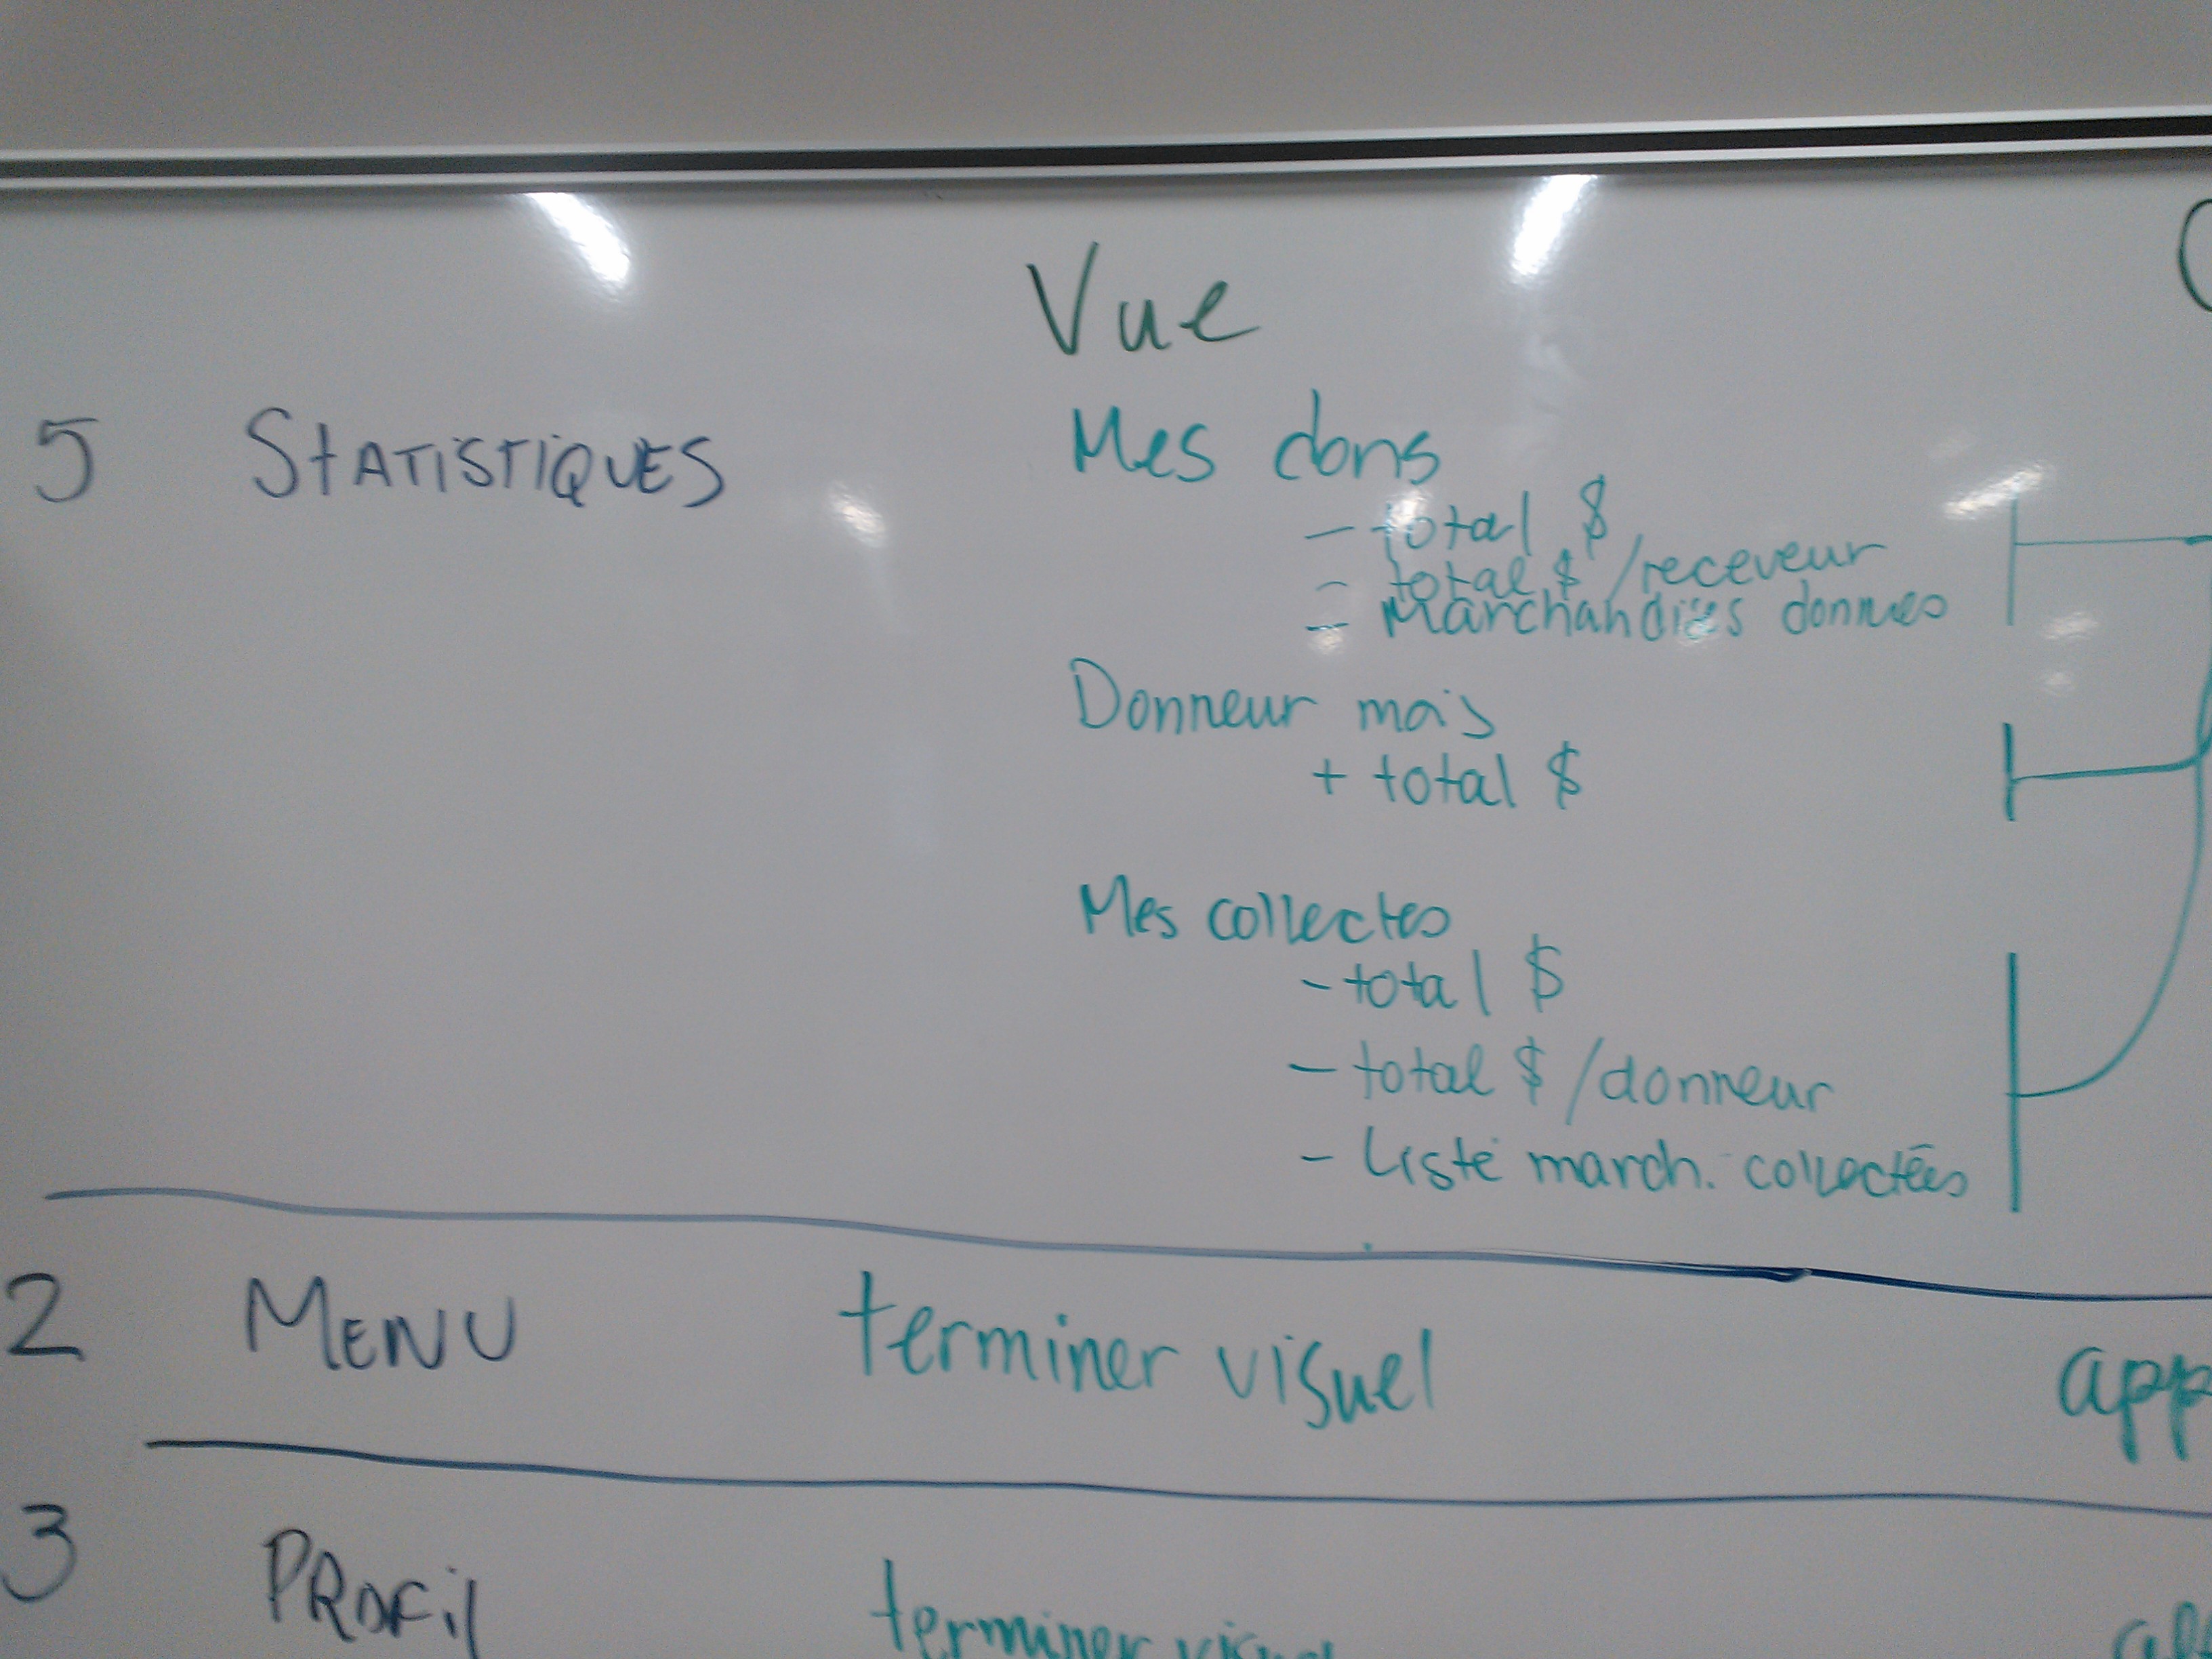 Vue
5 STATISTIQUES Mes dons
- total $
- total $ /receveur
- Marchandises données
Donneur mais
+ total $
Mes collectes
- total $
- total $ /donneur
- Liste march. collectées
2 MENU terminer visuel app
3 PROFIL terminer visuel